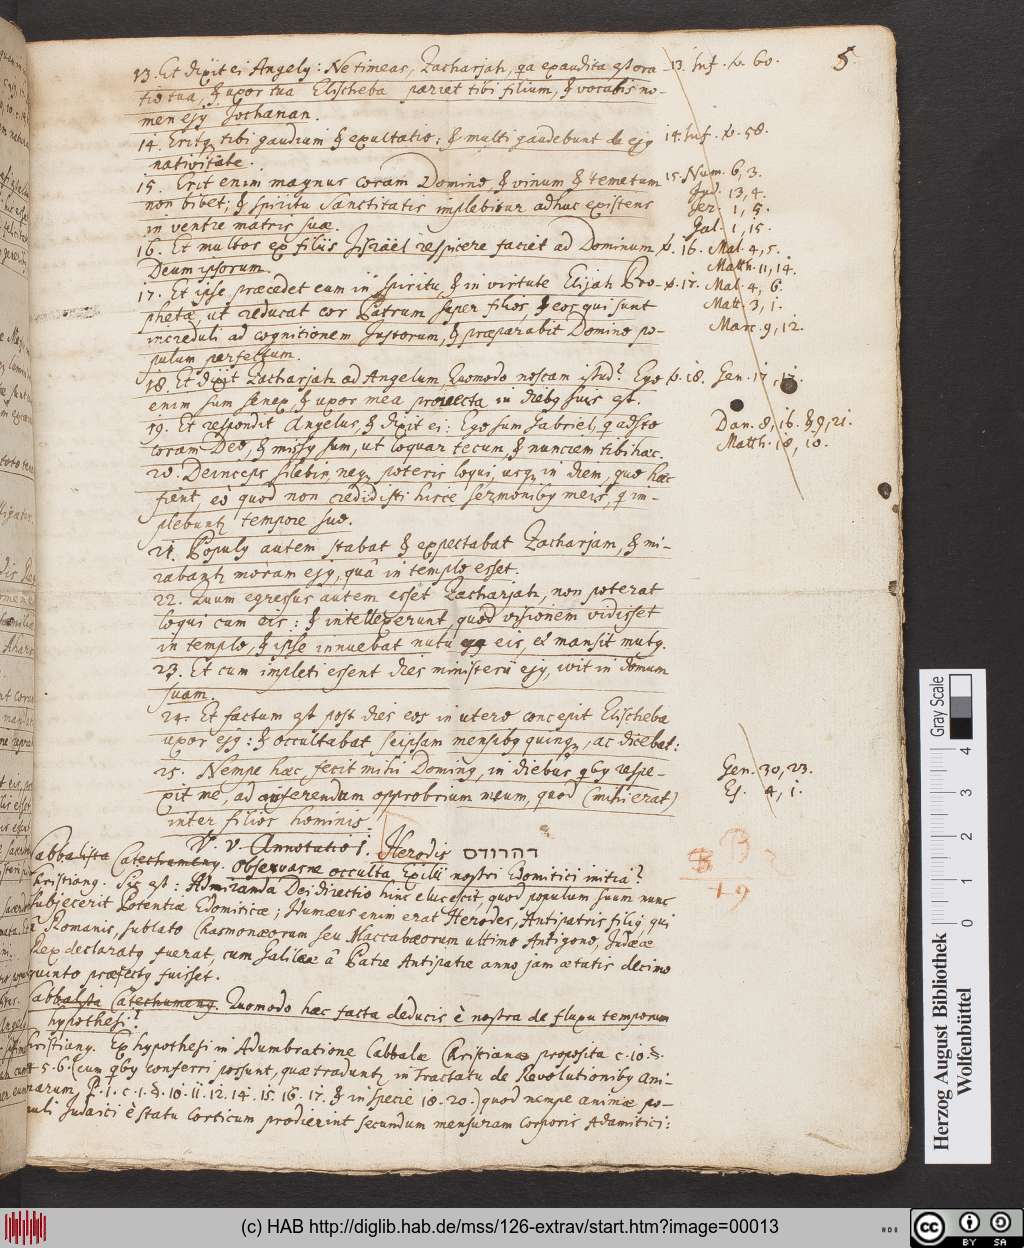 5
13. Et dixit ei Angelus: Ne timeas, Zacharjah, qa exaudita est ora- 13. Inf. v. 60.
tio tua, & uxor tua Elischeba pariet tibi filium, & vocabis no-
men ejus Jochanan.
14. Eritq tibi gaudium & exultatio: & multi gaudebunt de ejus 14. Inf. v. 58.
nativitate.
15. Erit enim magnus coram Domino & vinum & temetum 15. Num. 6, 3.
Jud. 13, 4.
non bibet; & spiritu Sanctitatis implebitur adhuc existens Jer. 1, 5.
in ventre matris suæ. Gal. 1, 15.
16. Et multos ex filiis Jisraël respicere faciet ad Dominum v. 16. Mal. 4, 5.
Deum ipsorum. Matth. 11, 14.
17. Et ipse præcedet eum in spiritu, & in virtute Elijah Pro- v. 17. Mal. 4, 6.
phetæ, ut reducat cor Patrum super filios, & eos qui sunt Matt. 3, 1.
increduli ad cognitionem Justorum, & præparabit Domino po- Marc. 9, 12.
pulum perfectum.
18. Et dixit Zacharjah ad Angelum, Quomodo noscam istud? Ego v. 18. Gen. 17, 17.
enim sum senex & uxor mea provecta in diebus suis est.
19. Et respondit Angelus, & dixit ei: Ego sum Gabriel, q adsto Dan. 8, 16. & 9, 21.
coram Deo, & missus sum, ut loquar tecum, & nunciem tibi hæc. Matth. 18, 10.
20. Deinceps silebis, neq poteris loqui, usq in diem, quo hæc
fient, eò quod non credidisti hisce sermonibus meis, q im-
plebuntur tempore suo.
21. Populus autem stabat & expectabat Zacharjam, & mi-
rabantur moram ejus, quâ in templo esset.
22. Quum egressus autem esset Zacharjah, non poterat
loqui cum eis: & intellexerunt, quod visionem vidisset
in templo, & ipse innuebat nutu eis, et mansit mutus.
23. Et cum impleti essent dies ministerii ejus, ivit in domum
suam.
24. Et factum est post dies eos in utero concepit Elischeba
uxor ejus: & occultabat seipsam mensibus quinq, ac dicebat:
25. Nempe hæc fecit mihi Dominus, in diebus qbus respe- Gen. 30, 23.
xit me, ad auferendum opprobrium meum, quod (mihi erat) Es. 4, 1.
inter filios hominis.
V. v. Annotatio 1. Herodis דהרודס
Cabbalista Catechumenus. Observasne occulta Exilii nostri Edomitici initia?
Christianus. Sic est: Admiranda Dei directio hinc elucescit, quod populum suum nunc
subjecerit Potentiæ Edomiticæ; Idumæus enim erat Herodes, Antipatris filius, qui
à Romanis, sublato Chasmonæorum seu Maccabæorum ultimo Antigono, Judææ
Rex declaratus fuerat, cum Galilææ â Patre Antipatre anno jam ætatis decimo
quinto præfectus fuisset.
Cabbalista Catechumenus. Quomodo hæc facta deducis è nostra de fluxu temporum
hypothesi?
Christianus. Ex hypothesi in Adumbratione Cabbalæ Christianæ proposita c. 10. §.
5. 6. (cum qbus conferri possunt, quæ traduntur in Tractatu de Revolutionibus ani-
marum P. 1. c. 1. §. 10. 11. 12. 14. 15. 16. 17. & in specie 18. 20.) quod nempe animæ po-
puli Judaici è statu Corticum prodierint secundum mensuram Corporis Adamitici:
19
Herzog August Bibliothek
Wolfenbüttel
Gray Scale
0 1 2 3 4
(c) HAB http://diglib.hab.de/mss/126-extrav/start.htm?image=00013
cc BY SA